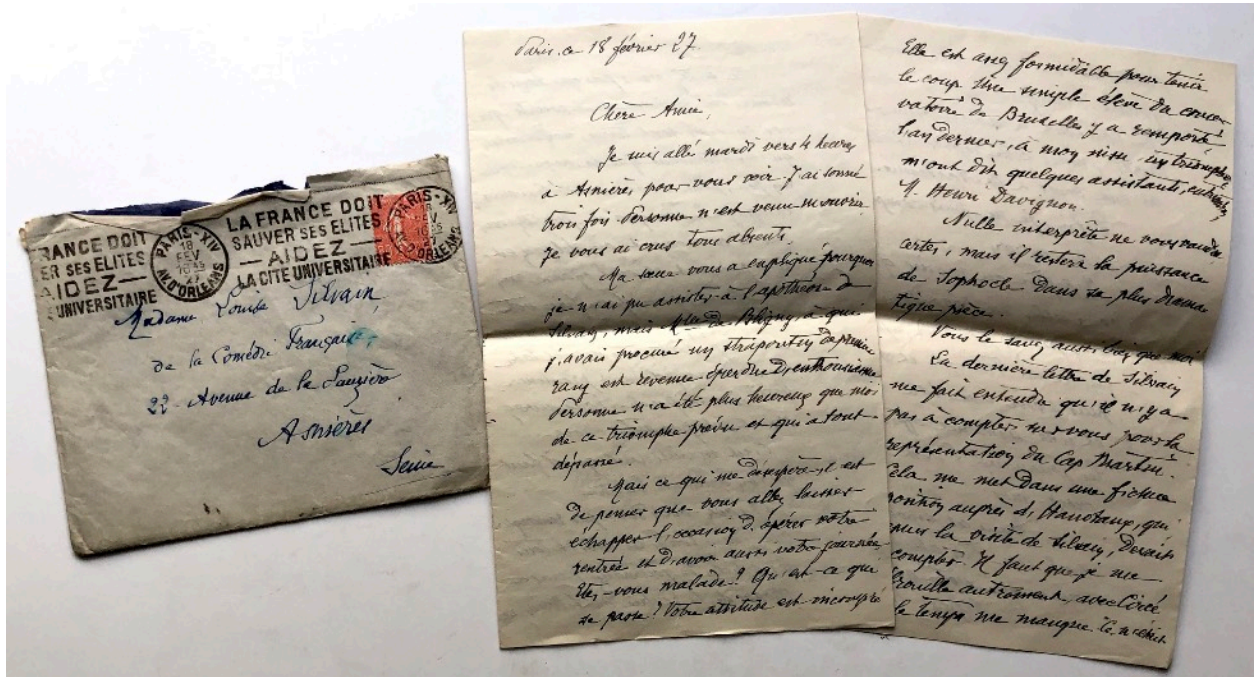 RANCE DOIT
ER SES ELITES
AIDEZ
UNIVERSITAIRE
PARIS-XIV
18
FEV
AV. D'ORLEANS
LA FRANCE DOIT
SAUVER SES ELITES
AIDEZ
LA CITE UNIVERSITAIRE
PARIS-XIV
18
FEV
AV. D'ORLEANS
Madame Louise Silvain
de la Comédie Française
22 Avenue de la
Asnières
Seine
Paris. ce 18 février 27.
Chère Amie,
Je suis allé mardi vers 4 heures
à Asnières pour vous voir. J'ai sonné
trois fois. Personne n'est venu m'ouvrir.
Je vous ai crus tous absents.
Ma sœur vous a expliqué pourquoi
je n'ai pu assister à l'apothéose de
Silvain, mais de à qui
j'avais procuré un strapontin de premier
rang est revenue éperdue d'enthousiasme
Personne n'a été plus heureux que moi
de ce triomphe prévu et qui a tout
dépassé.
Mais ce qui me désespère, c'est
de penser que vous allez laisser
echapper l'occasion d'opérer votre
rentrée et d'avoir aussi votre journée
Etes-vous malade? Qu'est-ce qui
se passe? Votre attitude est incompré
Elle est assez formidable pour tenir
le coup. Une simple élève du conser
vatoire de Bruxelles y a remporté
l'an dernier, à mon un triomphe
m'ont dit quelques assistants, entr'autres
M. Henri Davignon.
Nulle interprète ne vous vaudra
certes, mais il restera la puissance
de Sophocle dans sa plus drama
tique pièce.
Vous le savez aussi bien que moi
La dernière lettre de Silvain
me fait entendre qu'il n'y a
pas à compter sur vous pour la
représentation du Cap Martin.
Cela me met dans une fichue
position auprès d'Hanotaux, qui,
la visite de Silvain,
compter. Il faut que je me
autrement, avec Circé
le temps me manque. Ce n'était